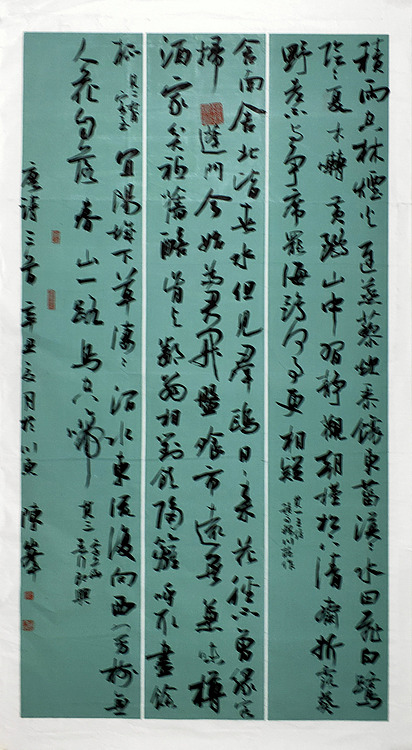 積雨空林煙火遲蒸藜炊黍餉東菑漠〻水田飛白鷺
陰〻夏木囀黃鸝山中習靜觀朝槿松下清齋折露葵
野老與爭席罷海鷗何事更相疑
其一王維
舍南舍北皆春水但見群鷗日日來花徑不曾緣客
掃蓬門今始為君開盤飧市遠無兼味樽
酒家貧祗舊醅肯與鄰翁相對飲隔籬呼取盡餘
杯
宜陽城下草淒〻澗水東流復向西芳樹無
人花自落春山一路鳥空啼
其三
春行即興
唐詩三首辛丑夏月於川東陳峰